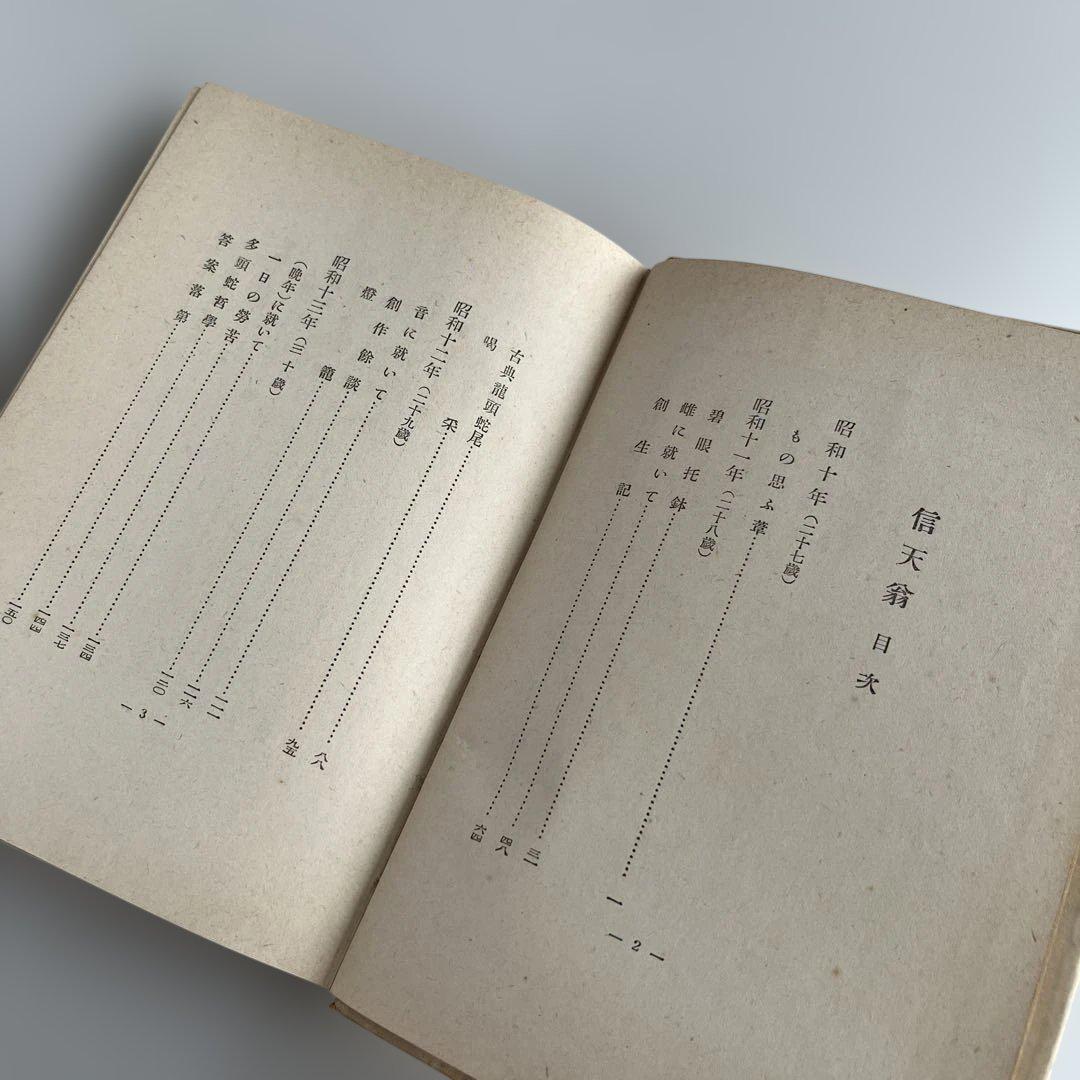 信天翁 目次
昭和十年(二十七歳)
もの思ふ葦……………………一
昭和十一年(二十八歳)
碧眼托鉢……………………三一
雌に就いて……………………四八
創生記……………………六四
— 2 —
古典龍頭蛇尾……………………八八
喝采……………………九五
昭和十二年(二十九歳)
音に就いて……………………
創作餘談……………………一一六
燈籠……………………一二〇
昭和十三年(三十歳)
(晩年)に就いて……………………一三四
一日の勞苦……………………一三七
多頭蛇哲學……………………一四四
答案落第……………………一五〇
— 3 —